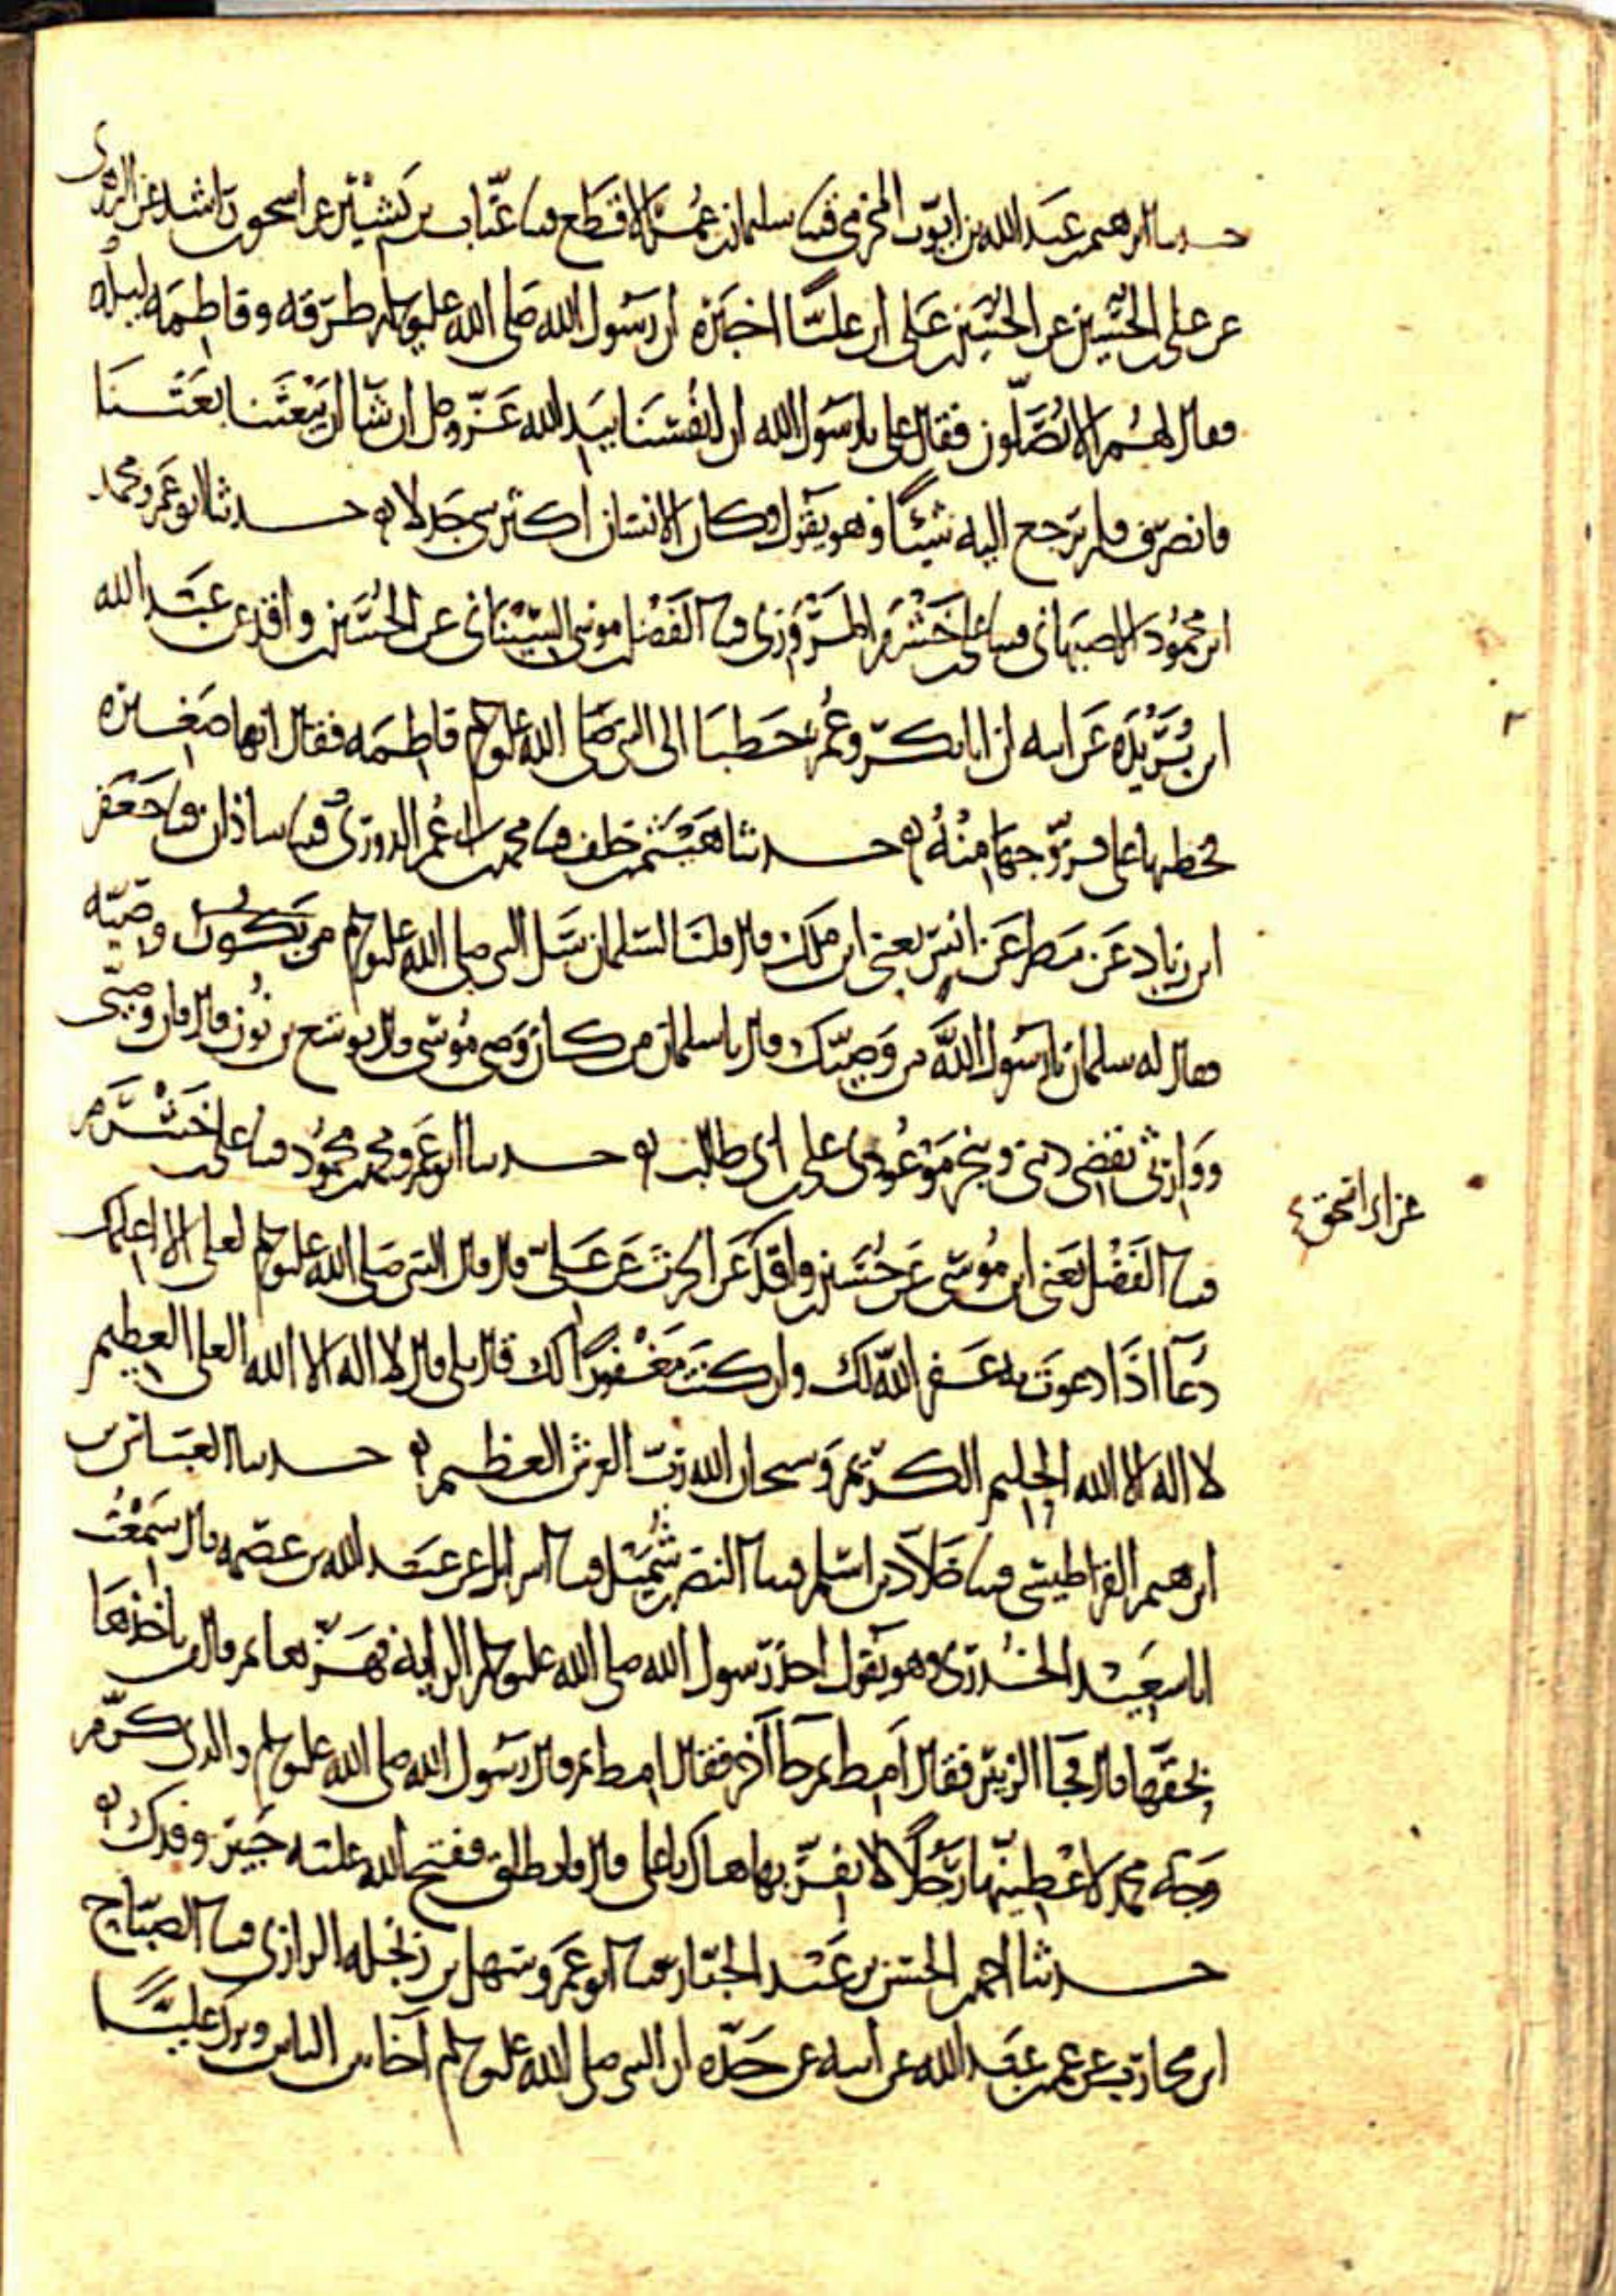 حدثنا ابرهيم بن عبد الله بن ايوب المخرمي قثنا سليمان بن عمر الاقطع قثنا عتاب بن بشير عن اسحق بن راشد عن الزهري
عن علي بن الحسين عن الحسين بن علي ان عليا اخبره ان رسول الله صلى الله عليه وسلم طرقه وفاطمه ليله
فقال لهم الا تصلون فقال علي يا رسول الله ان انفسنا بيد الله عز وجل ان شا ان يبعثنا بعثنا
فانصرف فلم يرجع اليه شيئا وهو يقول وكان الانسان اكثر شي جدلا حدثنا ابو عمرو محمد
ابن محمود الاصبهاني قثنا علي بن خشرم المروزي قثنا الفضل بن موسى السيناني عن الحسين بن واقد عن عبد الله
ابن بريده عن ابيه ان ابا بكر وعمر خطبا الى النبي صلى الله عليه وسلم فاطمه فقال انها صغيره
فخطبها علي فزوجها منه حدثنا هيثم بن خلف قثنا محمد بن ابي عمر الدوري قثنا شاذان قثنا جعفر
ابن زياد عن مطر عن انس يعني ابن ملك قال قلنا لسلمان سل النبي صلى الله عليه وسلم من يكون وصيه
فقال له سلمان يا رسول الله من وصيك قال يا سلمان من كان وصي موسى قال يوشع بن نون قال قال وصيي
ووارثي يقضي ديني وينجز موعودي علي بن ابي طالب حدثنا ابو عمرو محمد بن محمود قثنا علي بن خشرم
قثنا الفضل يعني ابن موسى عن حسين بن واقد عن الحرث عن علي قال قال النبي صلى الله عليه وسلم لعلي الا اعلمك
عن ابي اسحق
دعآ اذا دعوت به غفر الله لك وان كنت مغفورا لك قال بلى قال لا اله الا الله العلي العظيم
لا اله الا الله الحليم الكريم وسبحان الله رب العرش العظيم حدثنا العباس بن
ابرهيم القراطيسي قثنا خلاد بن اسلم قثنا النضر بن شميل قثنا اسرايل عن عبد الله بن عصمه قال سمعت
ابا سعيد الخدري وهو يقول اخذ رسول الله صلى الله عليه وسلم الرايه فهزها ثم قال من ياخذها
بحقها قال فجا الزبير فقال امط ثم جا آخر فقال امط ثم قال رسول الله صلى الله عليه وسلم والذي كرم
وجه محمد لاعطينها رجلا لا يفر بها هاك يا علي قال فانطلق ففتح الله عليه خيبر وفدك
حدثنا احمد بن الحسن بن عبد الجبار قثنا ابو عمرو سهل بن زنجله الرازي قثنا الصباح
ابن محارب عن عمر بن عبد الله عن ابيه عن جده ان النبي صلى الله عليه وسلم آخا بين الناس وترك عليا